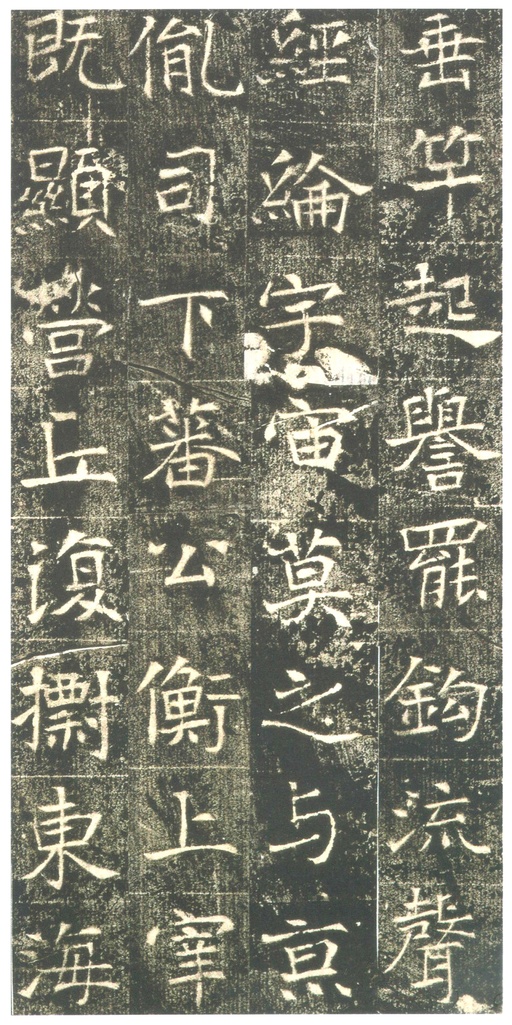 垂竿起譽罷鈎流聲
經綸宇宙莫之与亰
胤司下蕃公衡上宰
既顯營丘復樹東海